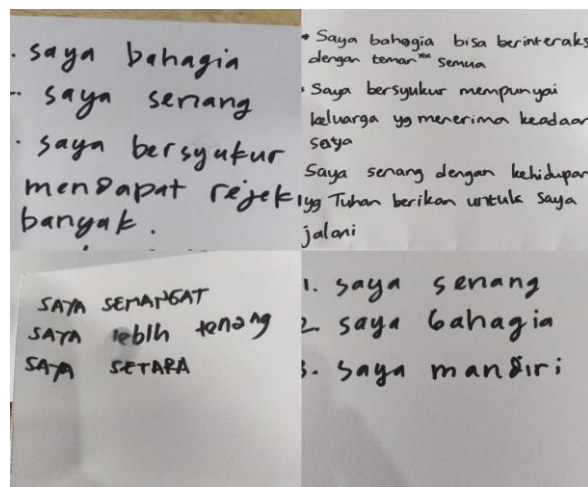 - saya bahagia
- saya senang
- saya bersyukur
mendapat rejeki
banyak.
• Saya bahagia bisa berinteraks
dengan teman" semua
• Saya bersyukur mempunyai
keluarga yg menerima keadaan
saya
Saya senang dengan kehidupan
yg Tuhan berikan untuk saya
jalani
SAYA SEMANGAT
SAYA leblh tenang
SAYA SETARA
1. saya senang
2. saya bahagia
3. saya mandiri